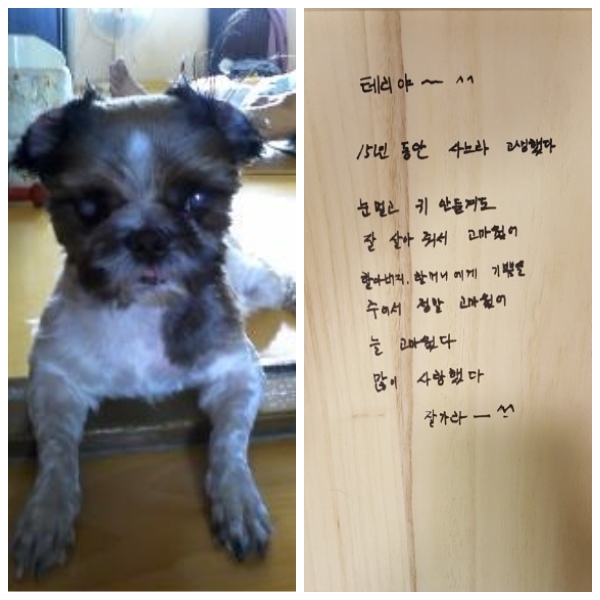 테리야~ ^^
15년 동안 사느라 고생했다
눈멀고 귀 안들려도
잘 살아 줘서 고마웠어
할아버지, 할머니에게 기쁨을
주어서 정말 고마웠어
늘 고마웠다
많이 사랑했다
잘가라— ^^